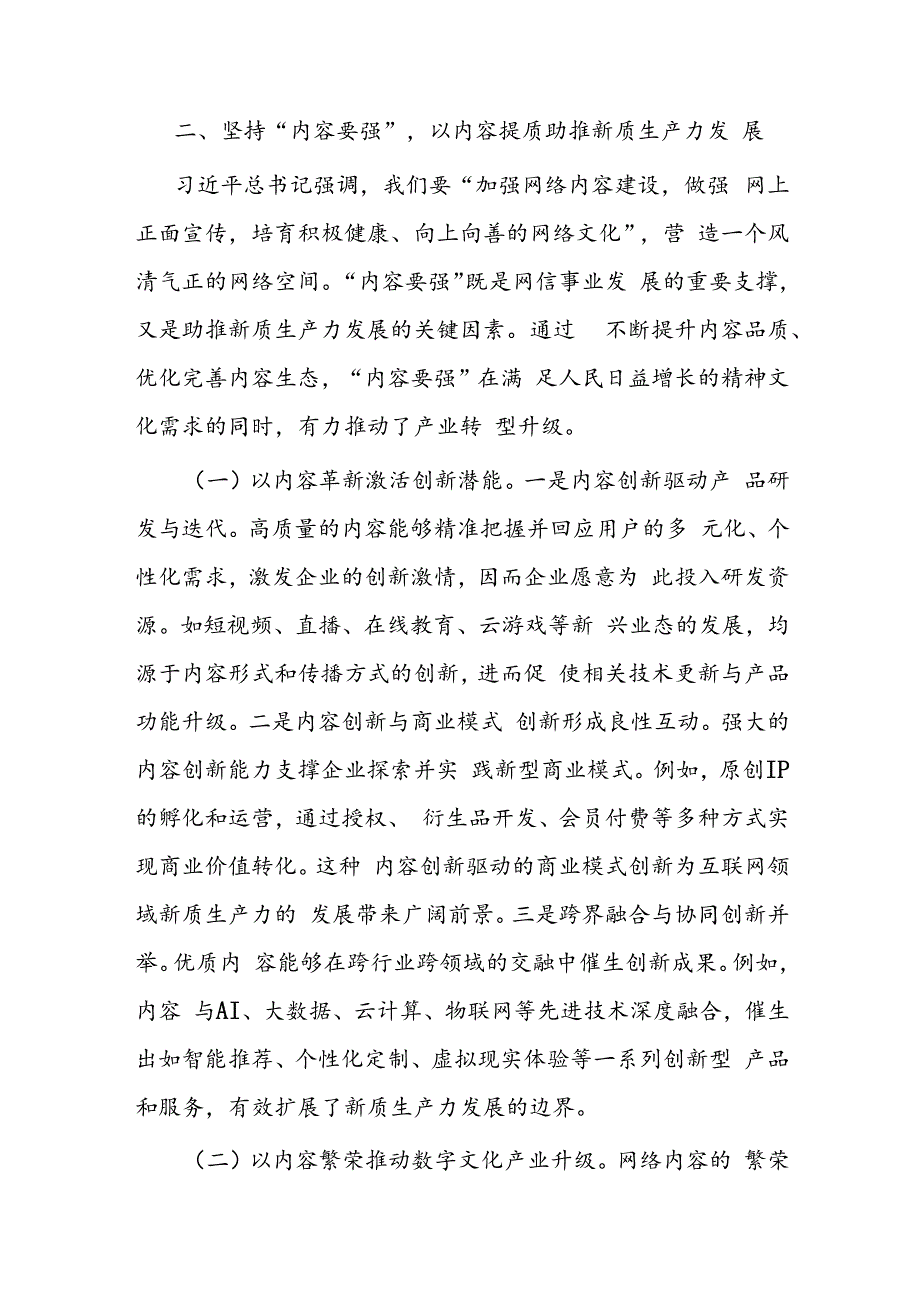 二、坚持“内容要强”，以内容提质助推新质生产力发 展
习近平总书记强调，我们要“加强网络内容建设，做强 网上
正面宣传，培育积极健康、向上向善的网络文化”，营 造一个风
清气正的网络空间。“内容要强”既是网信事业发 展的重要支撑，
又是助推新质生产力发展的关键因素。通过 不断提升内容品质、
优化完善内容生态，“内容要强”在满 足人民日益增长的精神文
化需求的同时，有力推动了产业转 型升级。
（一）以内容革新激活创新潜能。一是内容创新驱动产 品研
发与迭代。高质量的内容能够精准把握并回应用户的多 元化、个
性化需求，激发企业的创新激情，因而企业愿意为 此投入研发资
源。如短视频、直播、在线教育、云游戏等新 兴业态的发展，均
源于内容形式和传播方式的创新，进而促 使相关技术更新与产品
功能升级。二是内容创新与商业模式 创新形成良性互动。强大的
内容创新能力支撑企业探索并实 践新型商业模式。例如，原创IP
的孵化和运营，通过授权、 衍生品开发、会员付费等多种方式实
现商业价值转化。这种 内容创新驱动的商业模式创新为互联网领
域新质生产力的 发展带来广阔前景。三是跨界融合与协同创新并
举。优质内 容能够在跨行业跨领域的交融中催生创新成果。例如，
内容 与AI、大数据、云计算、物联网等先进技术深度融合，催生
出如智能推荐、个性化定制、虚拟现实体验等一系列创新型 产品
和服务，有效扩展了新质生产力发展的边界。
（二）以内容繁荣推动数字文化产业升级。网络内容的 繁荣